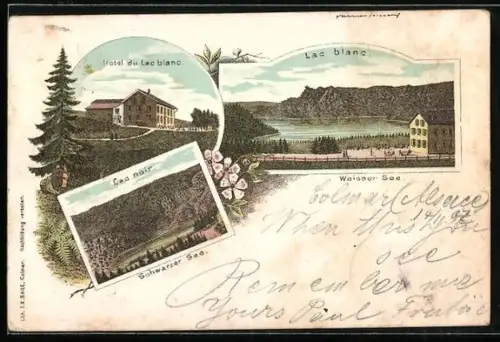 Hotel du Lac blanc.
Lac blanc.
Weisser See.
Lac noir.
Schwarzer See.
Lith. F.X. SAILE, Colmar. Nachbildung verboten.
Colmar/Alsace
When this you
see
Remember me
Yours Paul